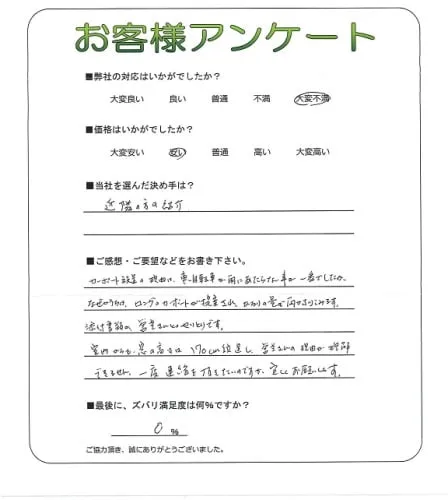 お客様アンケート
■弊社の対応はいかがでしたか？
大変良い 良い 普通 不満 大変不満
■価格はいかがでしたか？
大変安い 安い 普通 高い 大変高い
■当社を選んだ決め手は？
近隣の方の紹介
■ご感想・ご要望などをお書き下さい。
カーポート設置の理由は、車・自転車が雨にあたらない事が一番でしたが、
なぜか、ロング カーポートが提案され、かなりの量が雨
です。
窓の高さは170cm 営業さんの
一度連絡を頂きたいのですが、宜しくお願いします。
■最後に、ズバリ満足度は何%ですか？
0 %
ご協力頂き、誠にありがとうございました。